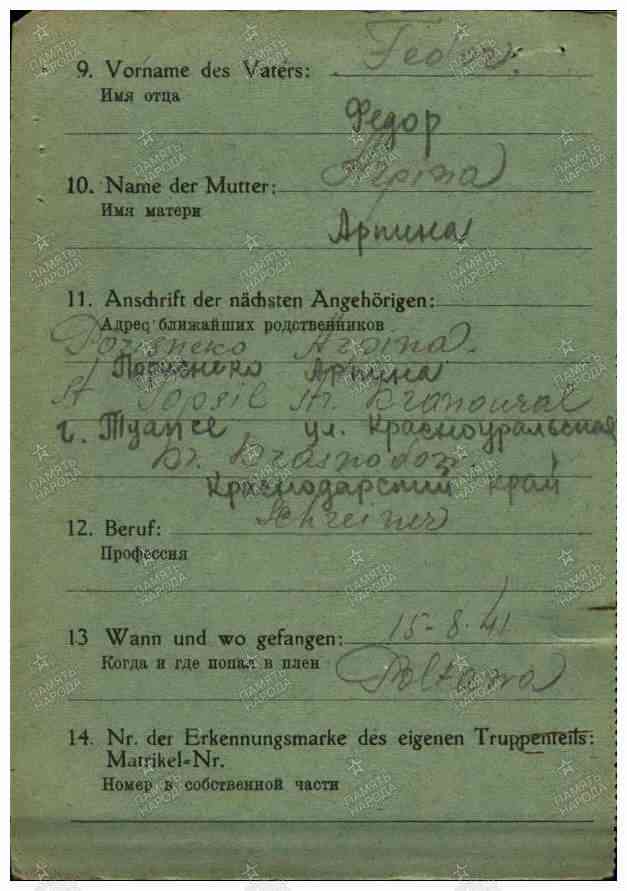 9. Vorname des Vaters: Fedor.
Имя отца
Федор
10. Name der Mutter: Arpina
Имя матери
Арпина
11. Anschrift der nächsten Angehörigen:
Адрес ближайших родственников
Arpina.
Арпина
St. st.
г. Туапсе ул. Красноуральская
Kr. Krasnodar
Краснодарский край
12. Beruf: Schreiner
Профессия
13 Wann und wo gefangen: 15-8.41
Когда и где попал в плен Poltawa
14. Nr. der Erkennungsmarke des eigenen Truppenteils:
Matrikel=Nr.
Номер в собственной части
ПАМЯТЬ
НАРОДА